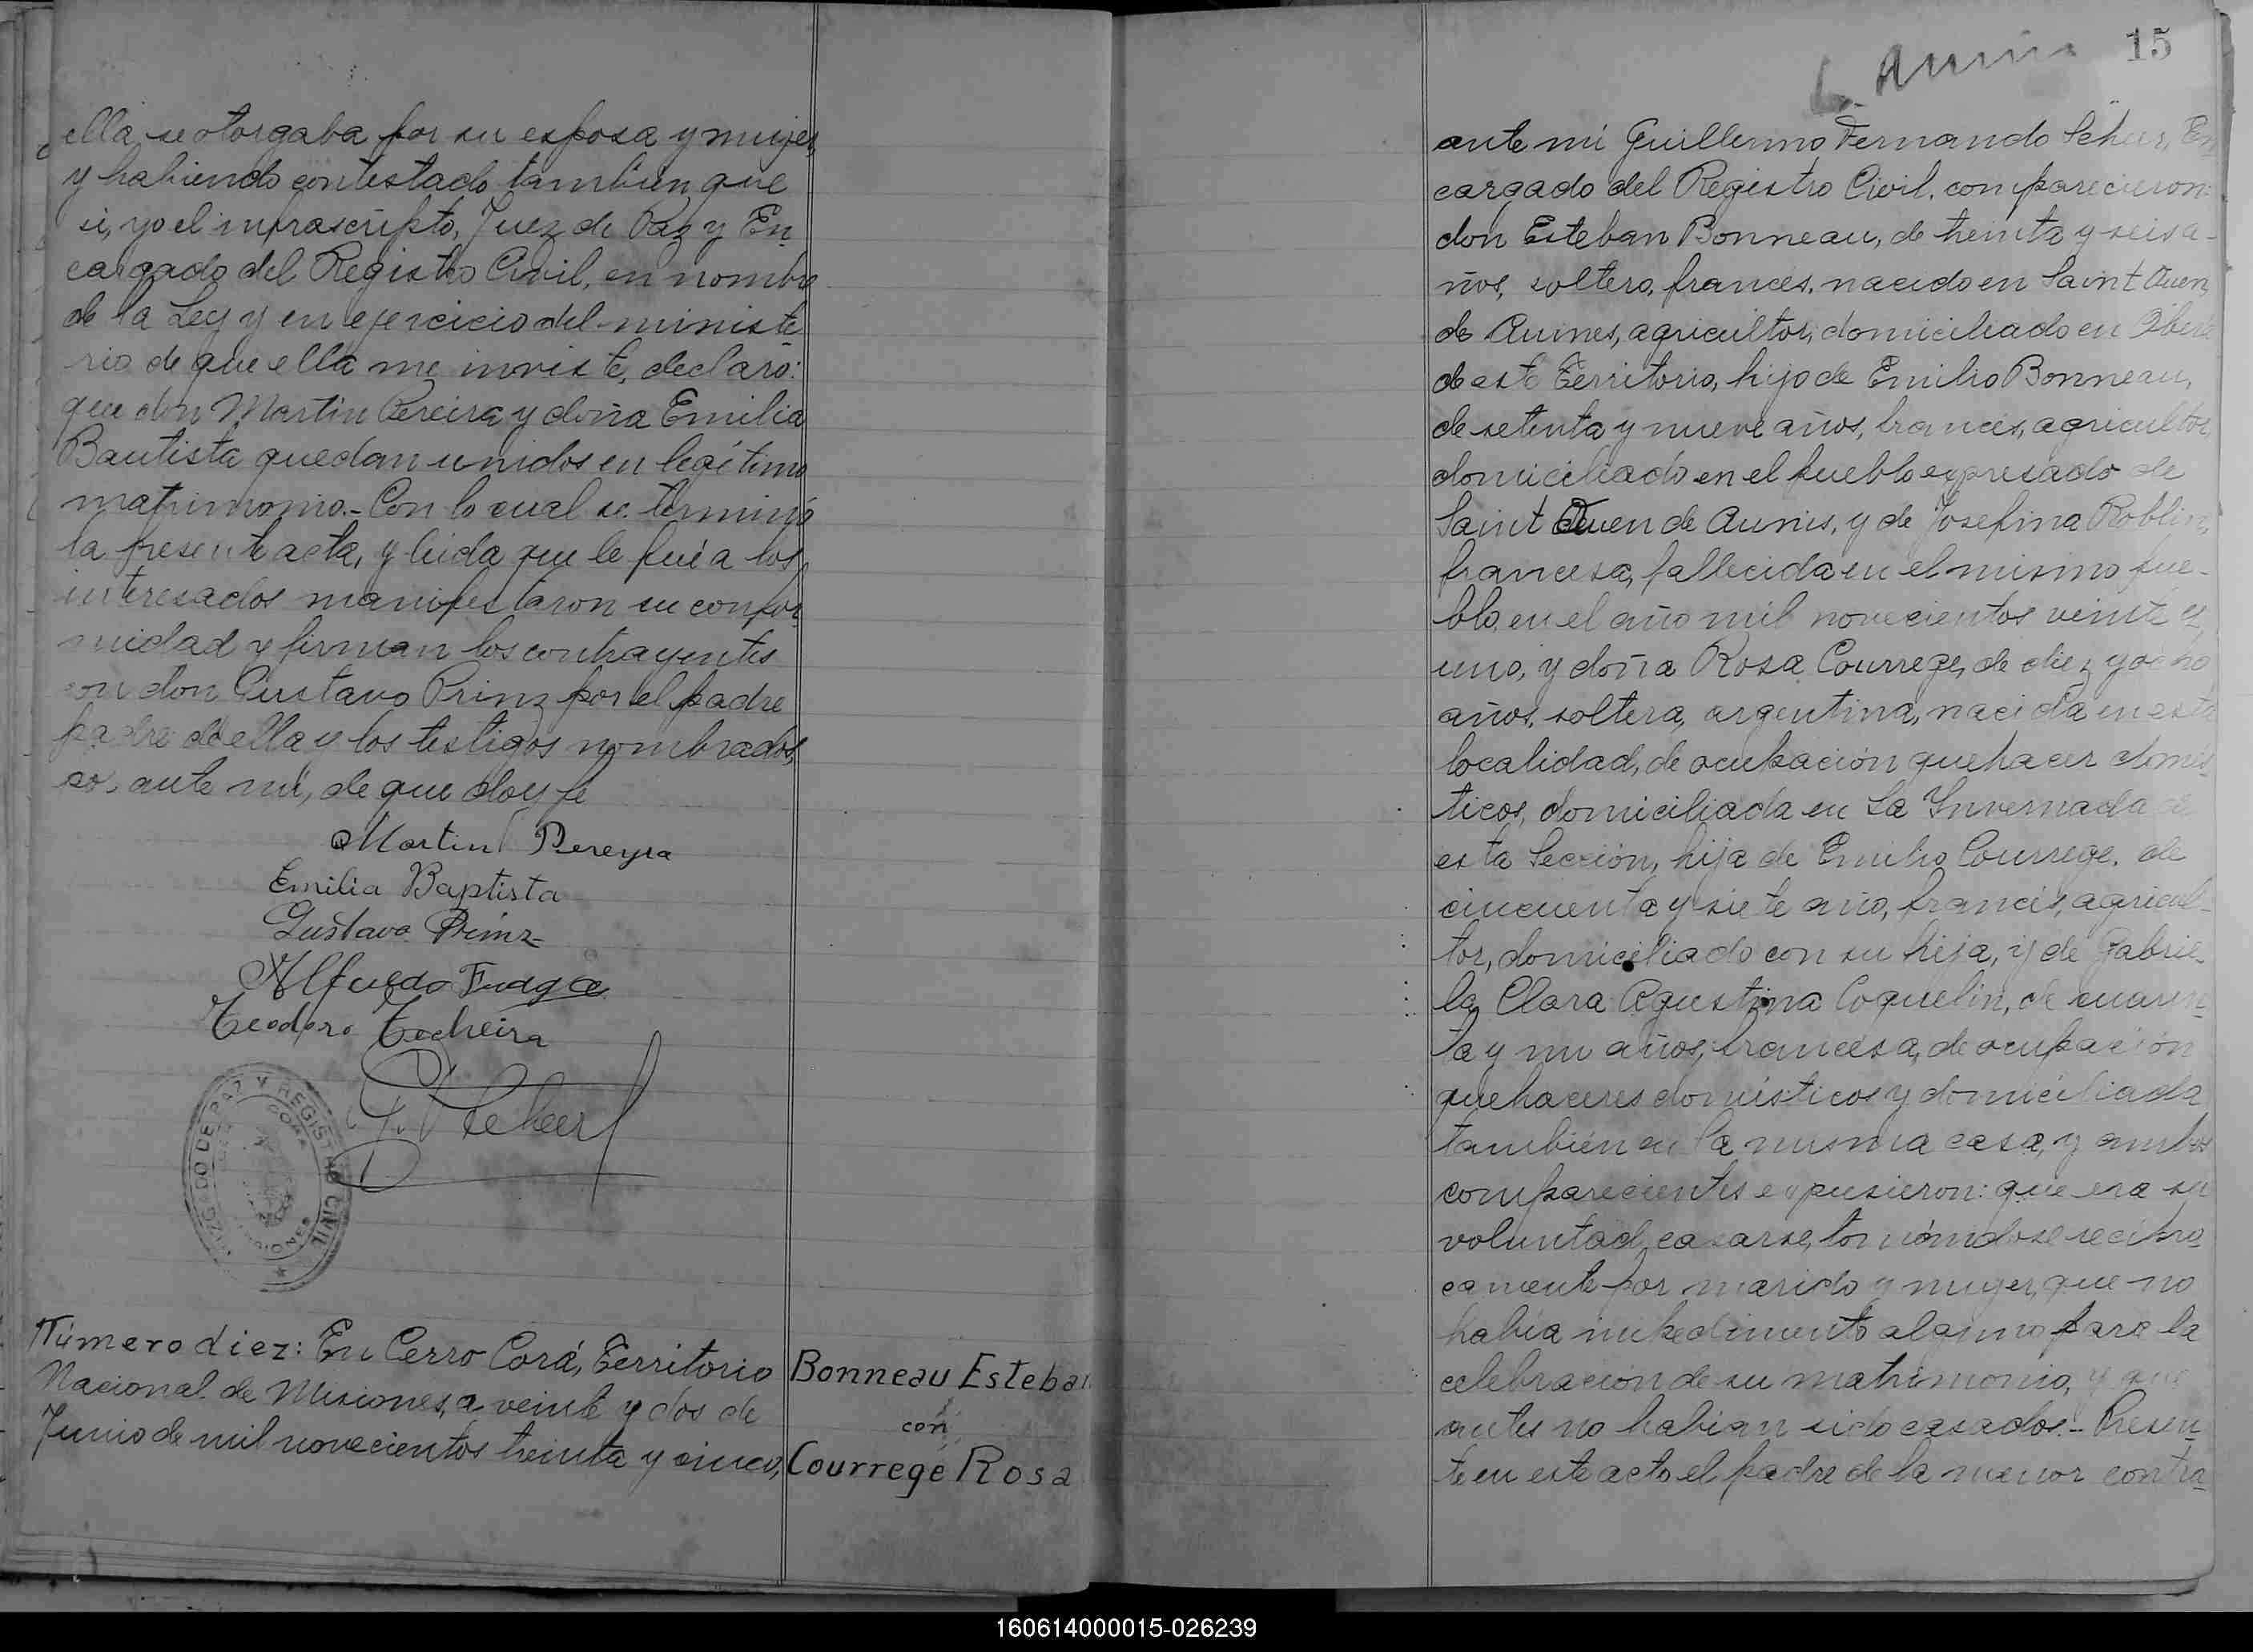 ella se otorgaba por su esposa y mujer,
y habiendo contestado tambien que
si, yo el infrascripto, Juez de Paz y En
cargado del Registro Civil, en nombre
de la Ley y en ejercicio del ministe
rio de que ella me inviste, declaro:
que don Martin Pereira y doña Emilia
Bautista quedan unidos en legítimo
matrimonio.- Con lo cual se terminó
la presente acta, y leida que le fué a los
interesados manifestaron su confor
midad y firman los contrayentes
con don Gustavo Prinz por el padre
padre de ella y los testigos nombrados,
so, ante mí, de que doy fe
Martin Pereyra
Emilia Baptista
Gustavo Prinz
Alfredo Fraga
Teodoro Techeira
JUZGADO DE PAZ Y REGISTRO CIVIL
MISIONES
Número diez: En Cerro Corá, Territorio
Nacional de Misiones, a veinte y dos de
Junio de mil novecientos treinta y cinco,
Bonneau Esteban
con
Courrege Rosa
15
ante mi Guillermo Fernando Scheer, En
cargado del Registro Civil, comparecieron:
don Esteban Bonneau, de treinta y seis a-
ños, soltero, frances, nacido en Saint Ouen,
de Aunes, agricultor, domiciliado en
de este Territorio, hijo de Emilio Bonneau,
de setenta y nueve años, francés, agricultor,
domiciliado en el pueblo expresado de
Saint Ouen de Aunis, y de Josefina Roblin,
francesa, fallecida en el mismo pue-
blo, en el año mil novecientos veinte y
uno, y doña Rosa Courrege, de diez y ocho
años, soltera, argentina, nacida en esta
localidad, de ocupación quehacer domés
ticos, domiciliada en La Invernada de
esta Sección, hija de Emilio Courrege, de
cincuenta y siete año, francés, agricul-
tor, domiciliado con su hija, y de Gabrie-
la Clara Agustina Coquelin, de cuaren-
ta y un años, francesa, de ocupación
quehaceres domésticos y domiciliada
también en la misma casa, y ambos
comparecientes expusieron: que era su
voluntad casarse, tomándose recipro
camente por marido y mujer, que no
había impedimento alguno para la
celebración de su matrimonio, y que
antes no habian sido casados.- Presen
te en este acto el padre de la menor contra
160614000015-026239